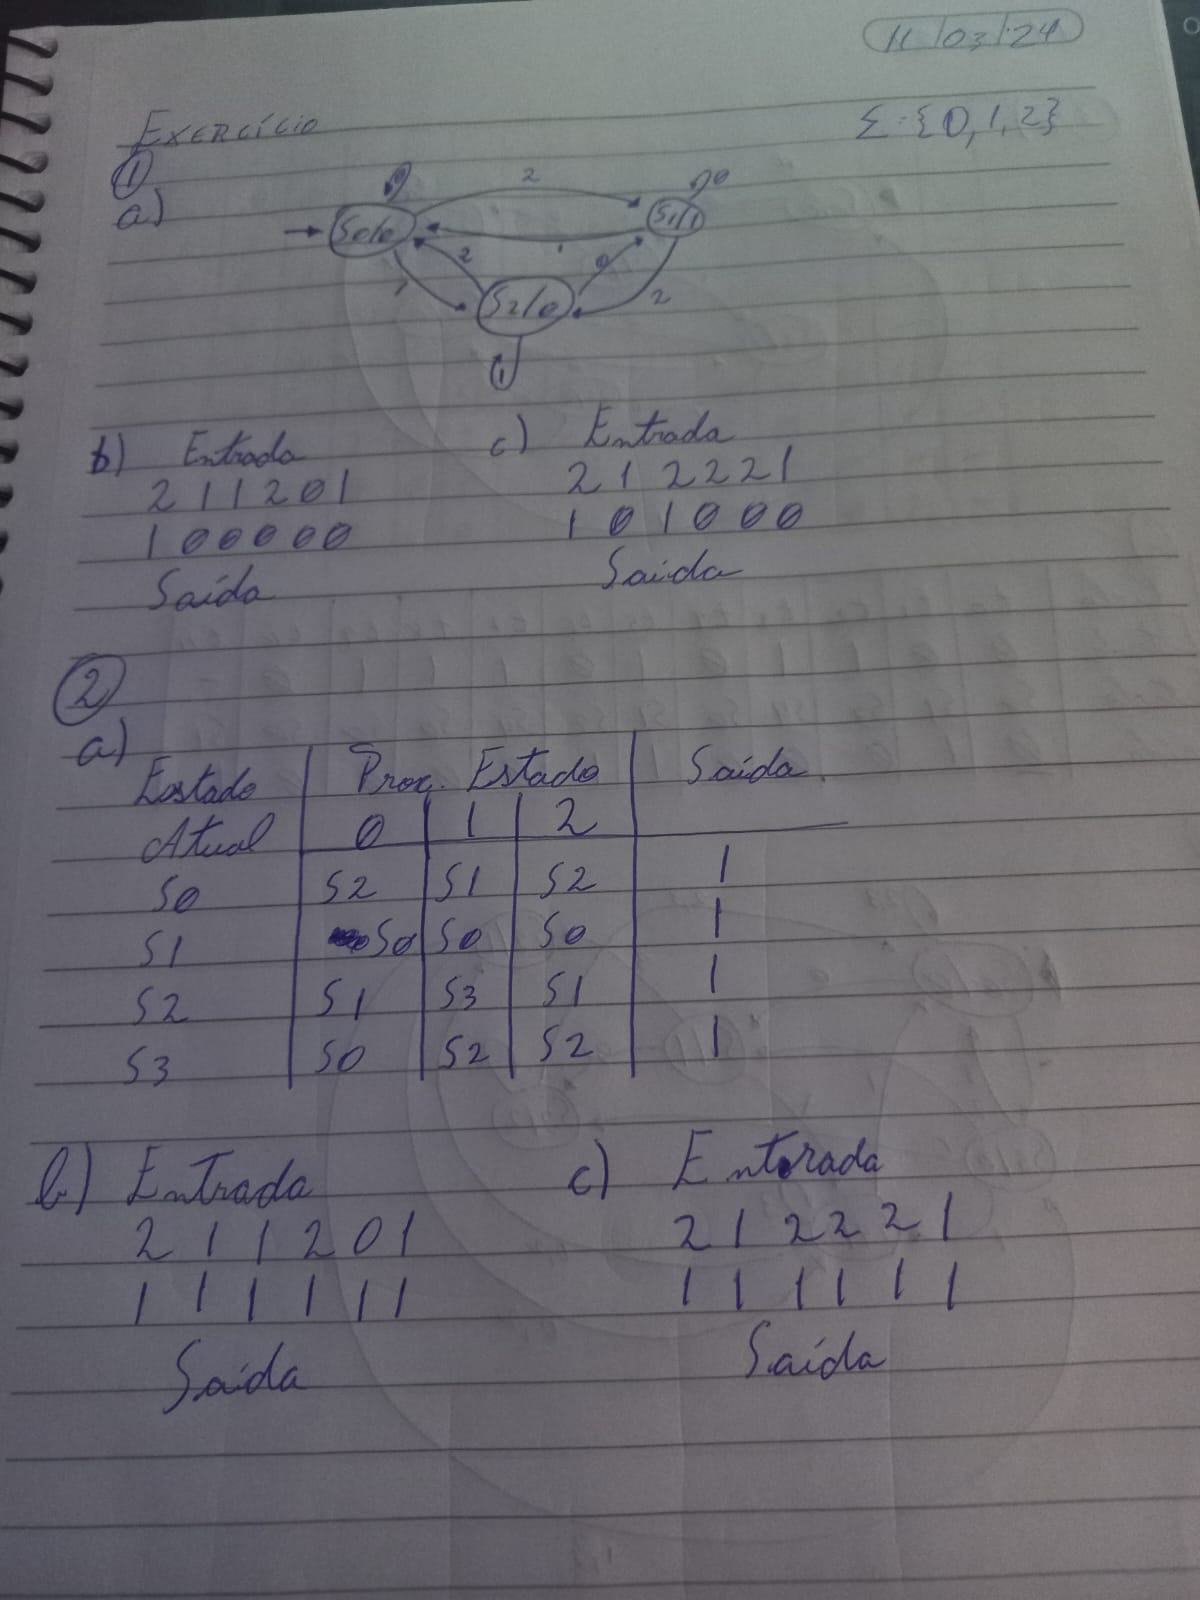 11/03/24
Exercício Σ={0,1,2}
1
a)
0 2 0
S0/0 S1/1
1
2 0
1 S2/0 2
1
b) Entrada
2 1 1 2 0 1
1 0 0 0 0 0
Saída
c) Entrada
2 1 2 2 2 1
1 0 1 0 0 0
Saida
2
a)
Estado Prox. Estado Saída
Atual 0 1 2
S0 S2 S1 S2 1
S1 S0 S0 S0 1
S2 S1 S3 S1 1
S3 S0 S2 S2 1
b) Entrada
2 1 1 2 0 1
1 1 1 1 1 1
Saída
c) Entrada
2 1 2 2 2 1
1 1 1 1 1 1
Saída